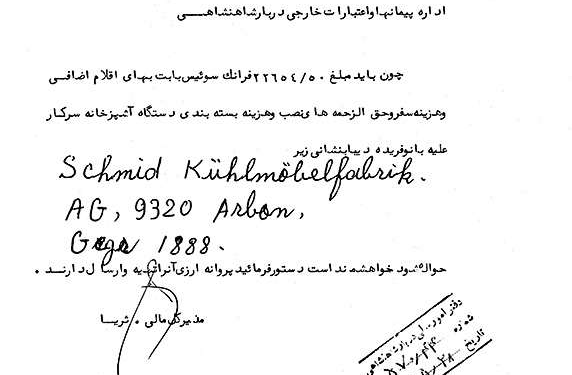 اداره پیمانها و اعتبارات خارجی دربار شاهنشاهی
چون باید مبلغ ۲۲۶۵۴/۵۰ فرانک سوئیس بابت بهای اقلام اضافی
و هزینه سفر و حق الزحمه های نصب و هزینه بسته بندی دستگاه آشپزخانه سرکار
علیه بانو فریده دیبا بنشانی زیر
Schmid Kühlmöbelfabrik.
AG, 9320 Arbon,
1888.
حواله شود خواهشمند است دستور فرمائید پروانه ارزی آنرا تهیه و ارسال دارند.
مدیر کل مالی. ثریا
دفتر امور مالی دربار شاهنشاهی
شماره
تاریخ